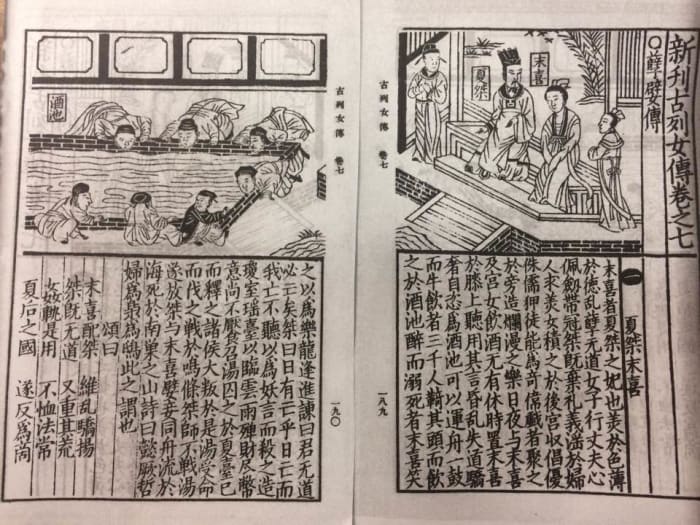 新刊古列女傳卷之七
〇孽嬖傳
末喜
夏桀
一 夏桀末喜
末喜者夏桀之妃也美於色薄
於德乱孽无道女子行丈夫心
佩劔帶冠桀旣棄礼義滛於婦
人求美女積之於後宮収倡優
侏儒狎徒能爲奇偉戲者聚之
於旁造爛漫之樂日夜与末喜
及宮女飲酒无有休時置末喜
於膝上聽用其言昏乱失道驕
奢自恣爲酒池可以運舟一鼓
而牛飲者三千人䩭其頭而飲
之於酒池醉而溺死者末喜笑
古列女傳 卷七
一八九
古列女傳 卷七
一九〇
酒池
之以爲樂龍逢進諫曰君无道
必亡矣桀曰日有亡乎日亡而
我亡不聽以爲妖言而殺之造
瓊室瑶臺以臨雲雨殫財尽幣
意尚不饜召湯囚之於夏臺已
而釋之諸侯大叛於是湯受命
而伐之戰於鳴條桀師不戰湯
遂放桀与末喜嬖妾同舟流於
海死於南巢之山詩曰懿厥哲
婦爲梟爲鴟此之謂也
頌曰
末喜配桀 維乱驕揚
桀旣无道 又重其荒
姦軌是用 不恤法常
夏后之國 遂反爲商